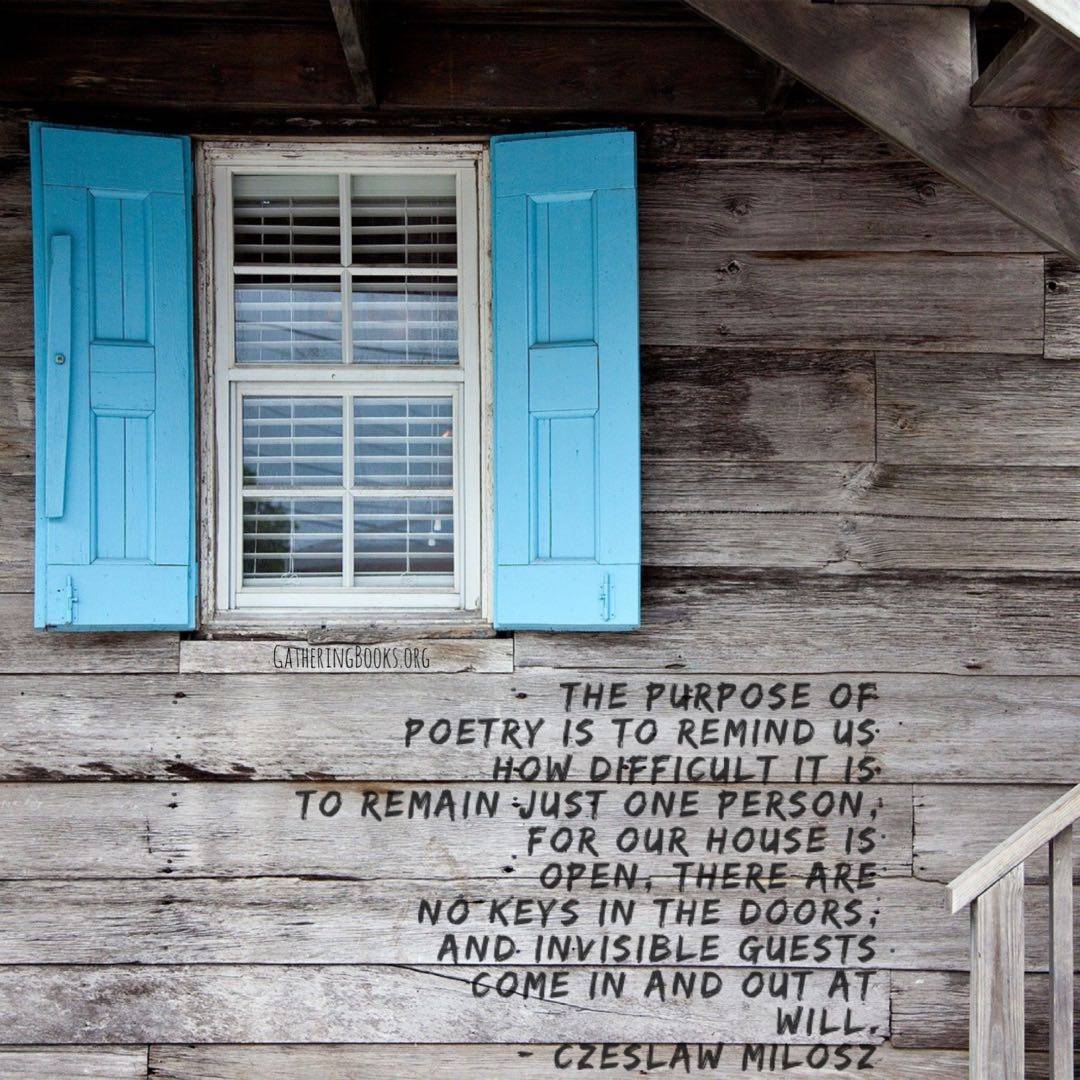 GatheringBooks.org
THE PURPOSE OF
POETRY IS TO REMIND US
HOW DIFFICULT IT IS
TO REMAIN JUST ONE PERSON,
FOR OUR HOUSE IS
OPEN, THERE ARE
NO KEYS IN THE DOORS,
AND INVISIBLE GUESTS
COME IN AND OUT AT
WILL.
- CZESLAW MILOSZ